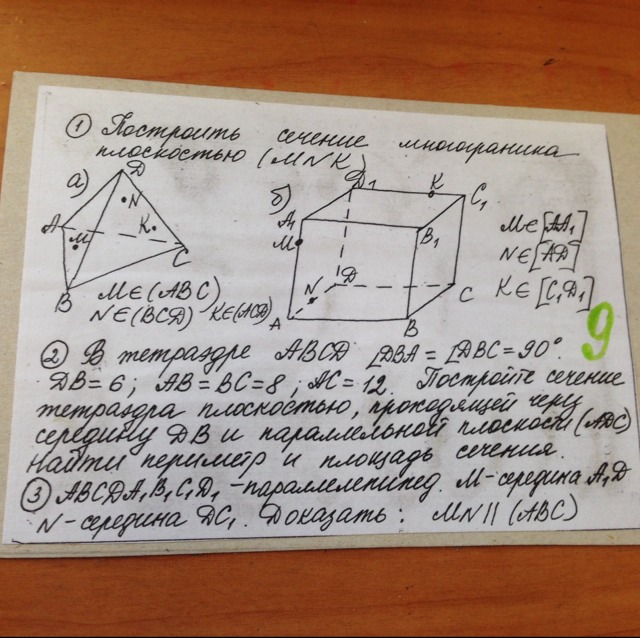 ① Построить сечение многограника
плоскостью (MNK)
а)
D
N
A
M
K
C
B
M∈(ABC)
N∈(BCD) K∈(ACD)
б)
D₁
K
C₁
A₁
M
B₁
N
D
C
A
B
M∈[AA₁]
N∈[AD]
K∈[C₁D₁]
9
② В тетраэдре ABCD ∠DBA = ∠DBC = 90°.
DB = 6; AB = BC = 8; AC = 12. Постройте сечение
тетраэдра плоскостью, проходящей через
середину DB и параллельной плоскости (ADC)
Найти периметр и площадь сечения.
③ ABCDA₁B₁C₁D₁ – параллелепипед. M – середина A₁D
N – середина DC₁. Доказать: MN || (ABC)